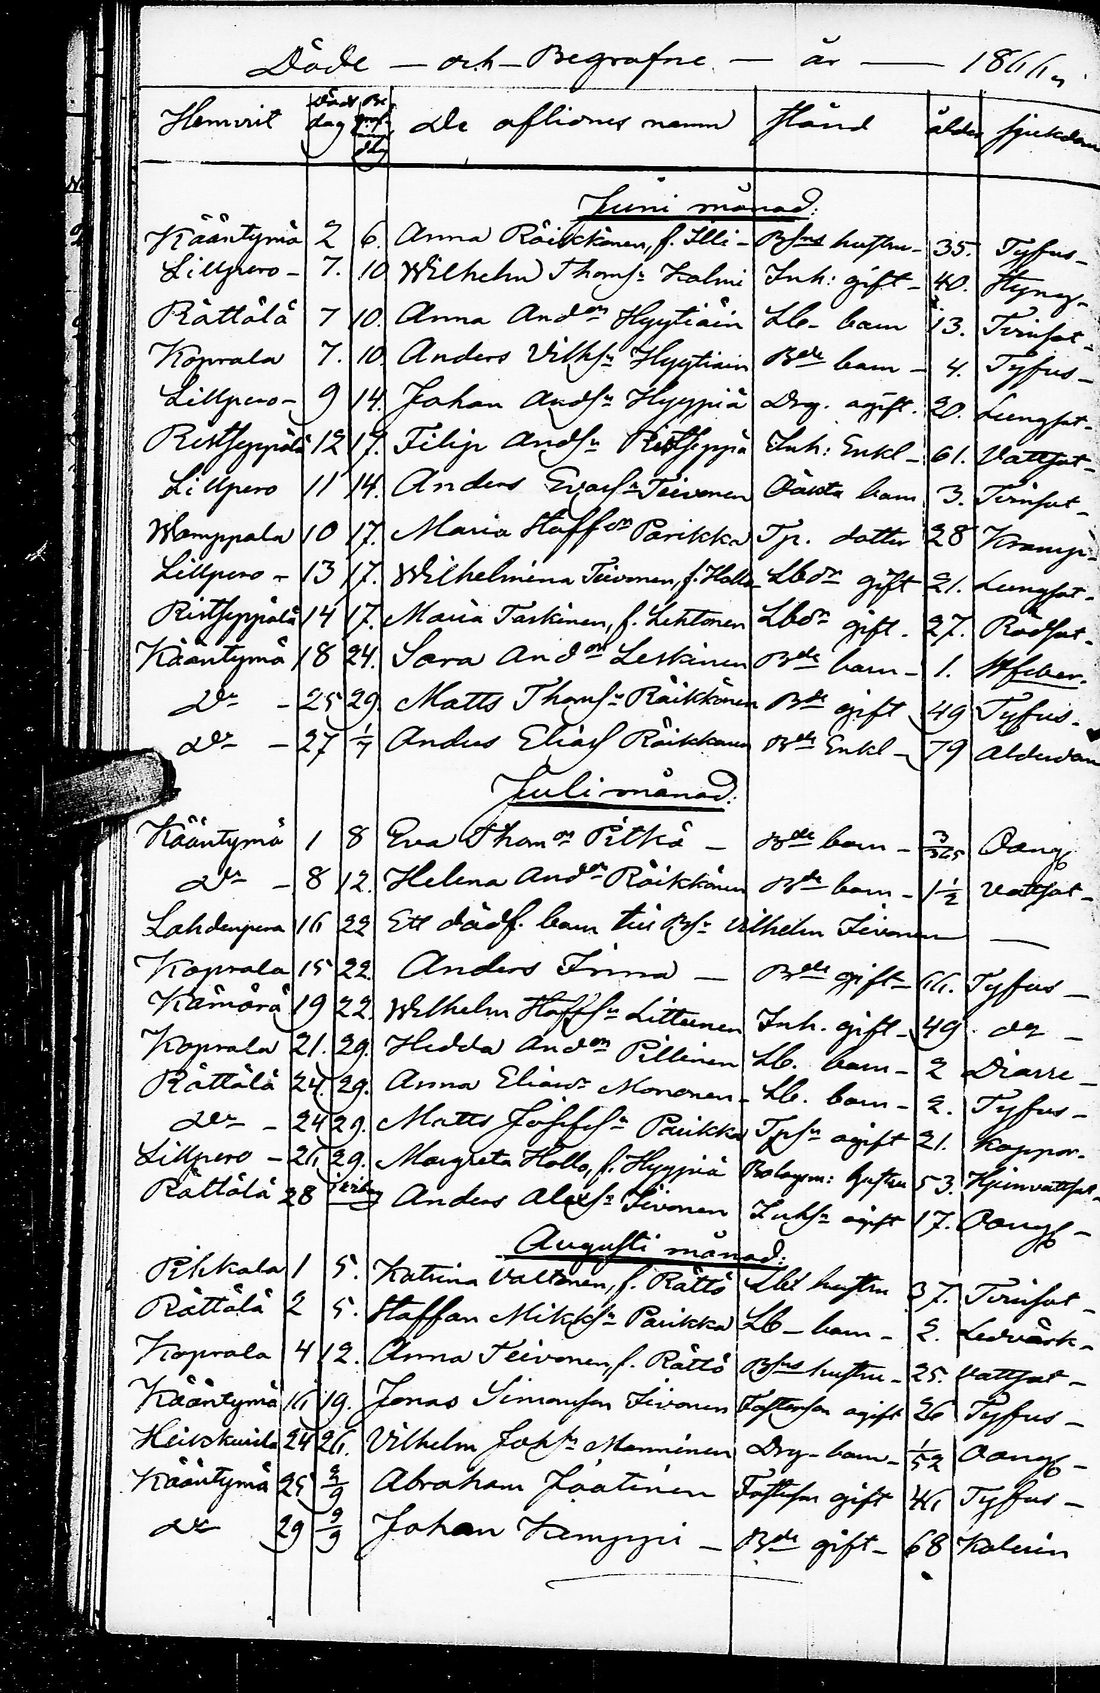 Döde — och — Begrafne — år — 1866
Hemvist Döds dag Begrafn. dag De aflidnes namn Stånd ålder sjukdom
Juni månad:
Kääntymä 2 6. Anna Räikkönen, f. Illi — Bfns hustru — 35. Tyfus —
Lillpero — 7. 10 Wilhelm Thoms:n Kalmi Inh: gift — 40. Styng —
Rättölä 7 10. Anna And:on Hyytiäin Lb — barn 13. Tvinsot —
Koprala 7. 10. Anders Vilhs:n Hyytiäin B:de barn — 4. Tyfus —
Lillpero — 9 14. Johan Ands:n Hyyppiä Drg. ogift. 20. Lungsot —
Ristseppälä 12 17. Filip Ands:n Ristseppä Inh: Enkl — 61. Vattsot —
Lillpero 11 14. Anders Teivonen barn 3. Tvinsot —
Wamppala 10 17. Maria Staff:on Parikka Tp. dotter 28 Kramp —
Lillpero — 13 17. Wilhelmina Teivonen, f. Hallo Lbdr gift 21. Lungsot —
Ristseppälä 14 17. Maria Taskinen, f. Lehtonen Lbdr gift. 27. Rödsot —
Kääntymä 18 24. Sara And:on Leskinen B:de barn — 1.
D:o — 25 29. Matts Thoms:n Räikkönen B:de gift 49 Tyfus —
D:o — 27 1/7 Anders Elias Räikkönen B:de Enkl — 79 Ålderdom
Juli månad:
Kääntymä 1 8 Eva Thom:on Pitkä — B:de barn — Oang
D:o — 8 12. Helena And:on Räikkönen B:de barn — 1 1/2 Vattsot —
Lahdenpera 16 22 Ett dödf. barn till Bfn Vilhelm Sivonen —
Koprala 15 22 Anders Inna — B:de gift — 66. Tyfus —
Kämärä 19 22. Wilhelm Staffs:n Litteinen Inh. gift — 49 do —
Koprala 21. 29. Hedda And:on Pillinen Lb. barn — 2 Diarre —
Rättölä 24. 29. Anna Mononen — Lb. barn — 2. Tyfus —
D:o — 24 29. Matts Josefs:n Parikka Tps:n ogift 21. Koppor.
Lillpero — 26 29. Margreta Hallo, f. Hyyppiä hustru 53.
Rättölä 28 Anders Alexs:n Sivonen Inhs:n ogift 17. Oang —
Augusti månad:
Pihkala 1 5. Katrina Valtonen, f. Rättö Lbs hustru 37. Tvinsot —
Rättölä 2 5. Staffan Mikks:n Parikka Lb — barn — 2. Ledvärk —
Koprala 4 12. Anna Teivonen, f. Rättö Bfns hustru — 25. Vattsot —
Kääntymä 16 19. Jonas Simonson Sivonen Fosterson ogift 26 Tyfus —
Heikkurila 24 26. Vilhelm Joh:s Manninen Drg — barn — 1/52 Oang —
Kääntymä 25 2/9 Abraham Jäätinen gift 46 Tyfus —
do 29 9/9 Johan Kemppi — B:de gift — 68 Kolerin